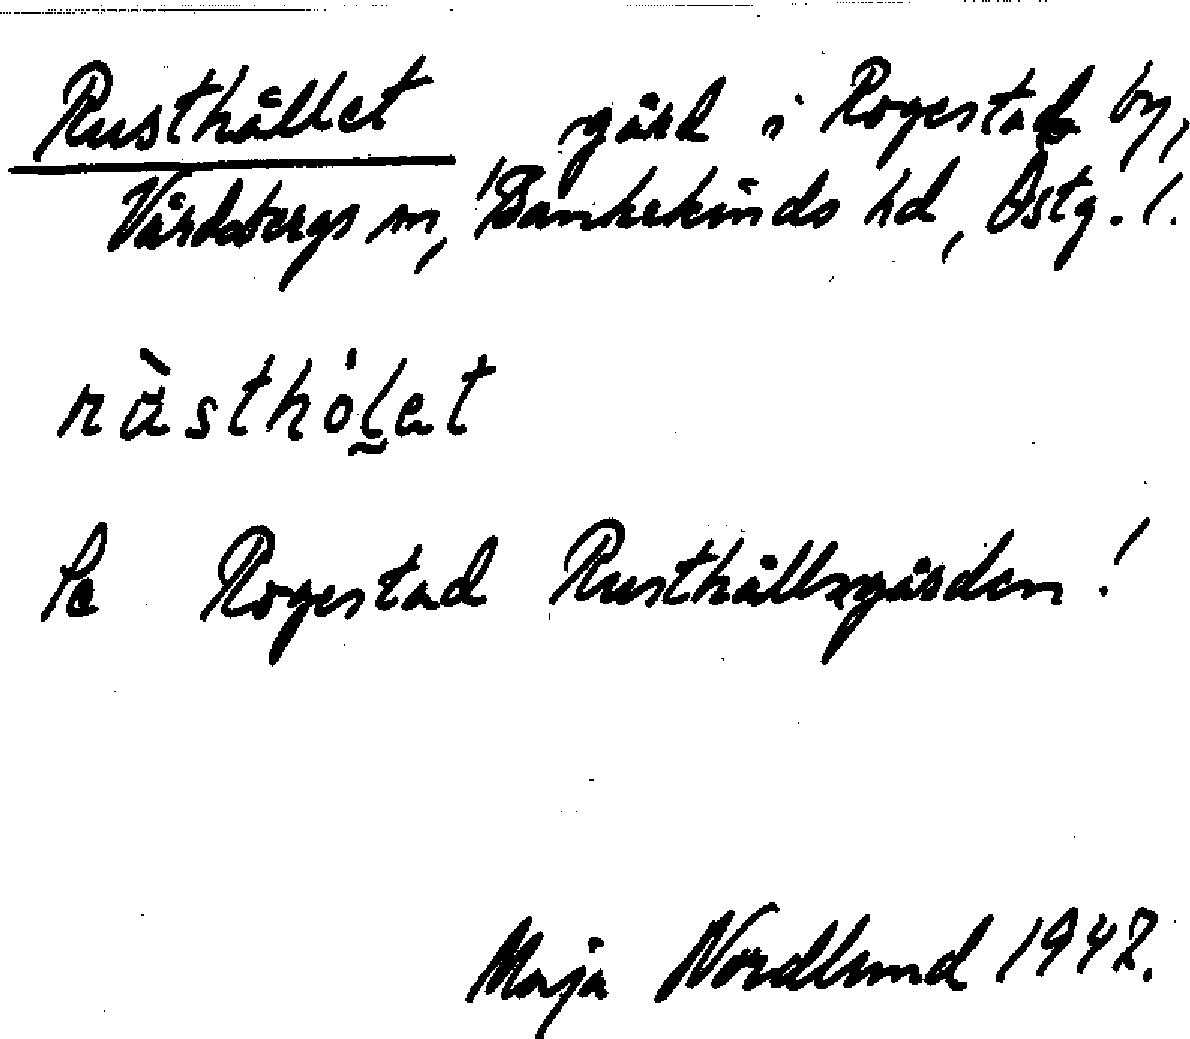 Rusthållet gård i Rogestad by,
Vårdsbergs sn, Bankekinds hd, Östg. l.
ràsthó̀let
Se Rogestad Rusthållsgården!
Maja Nordlund 1942.